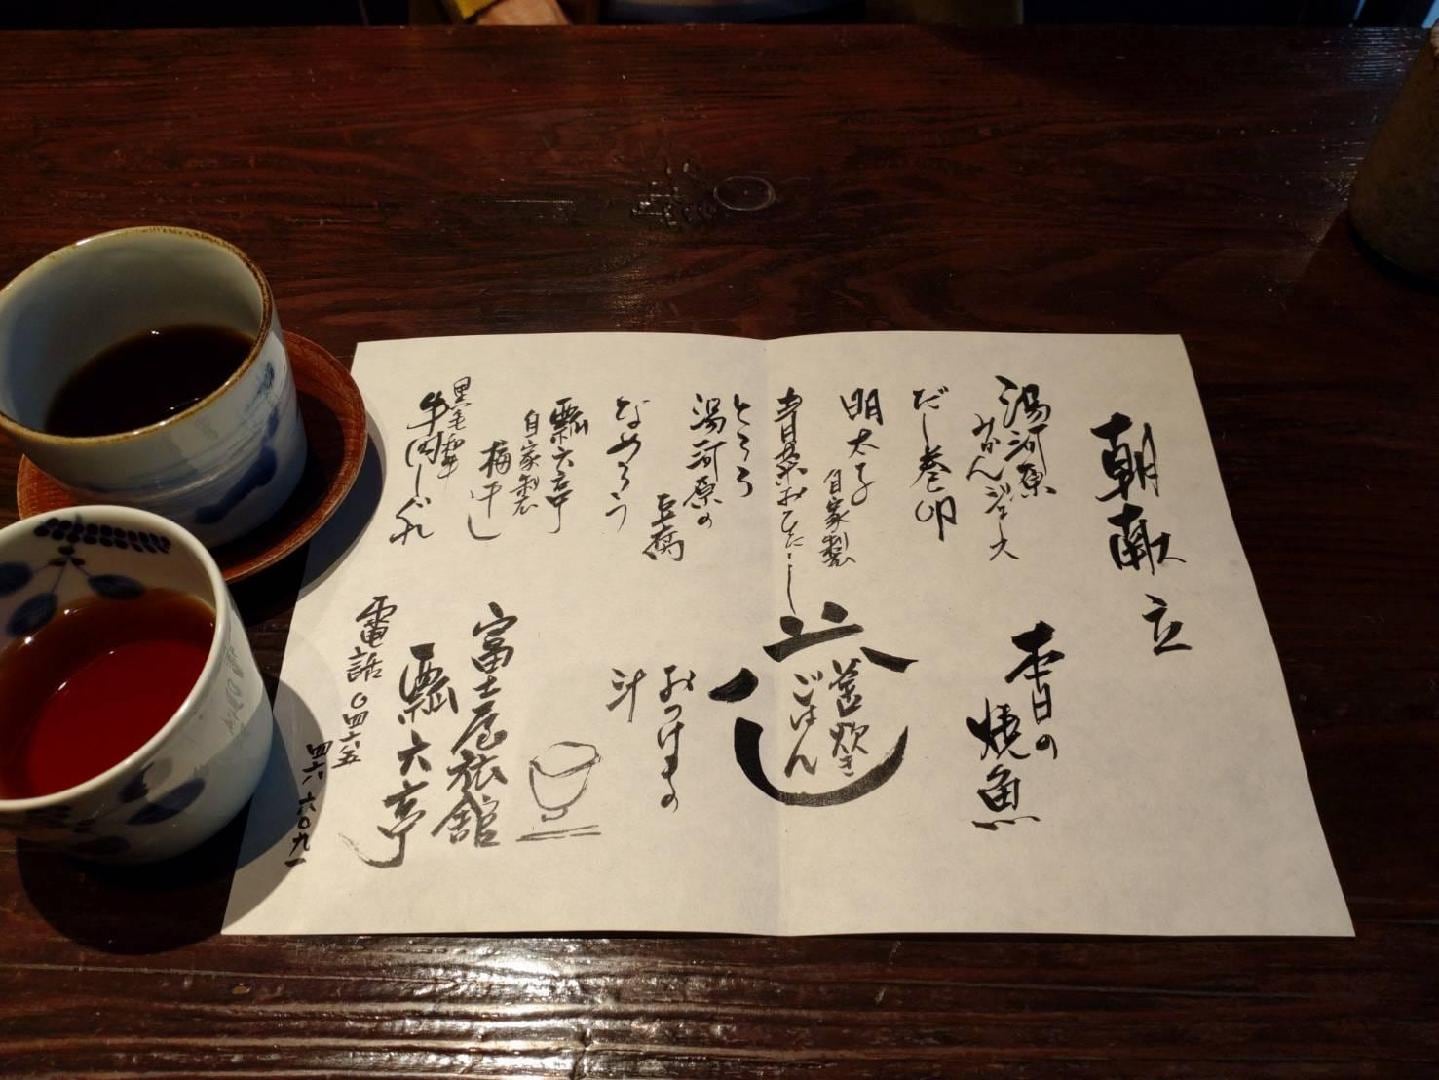 朝献立
湯河原
みかんジュース
だし巻卵
明太子
自家製
青菜おひたし
とろろ
湯河原の
豆腐
なめろう
瓢六亭
自家製
梅干し
黒毛和牛
牛肉しぐれ
本日の
焼魚
釜炊き
ごはん
おつけもの
汁
富士屋旅館
瓢六亭
電話 〇四六五
四六 六〇九一